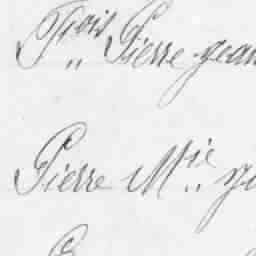 Frois Pierre jean
Pierre Mie